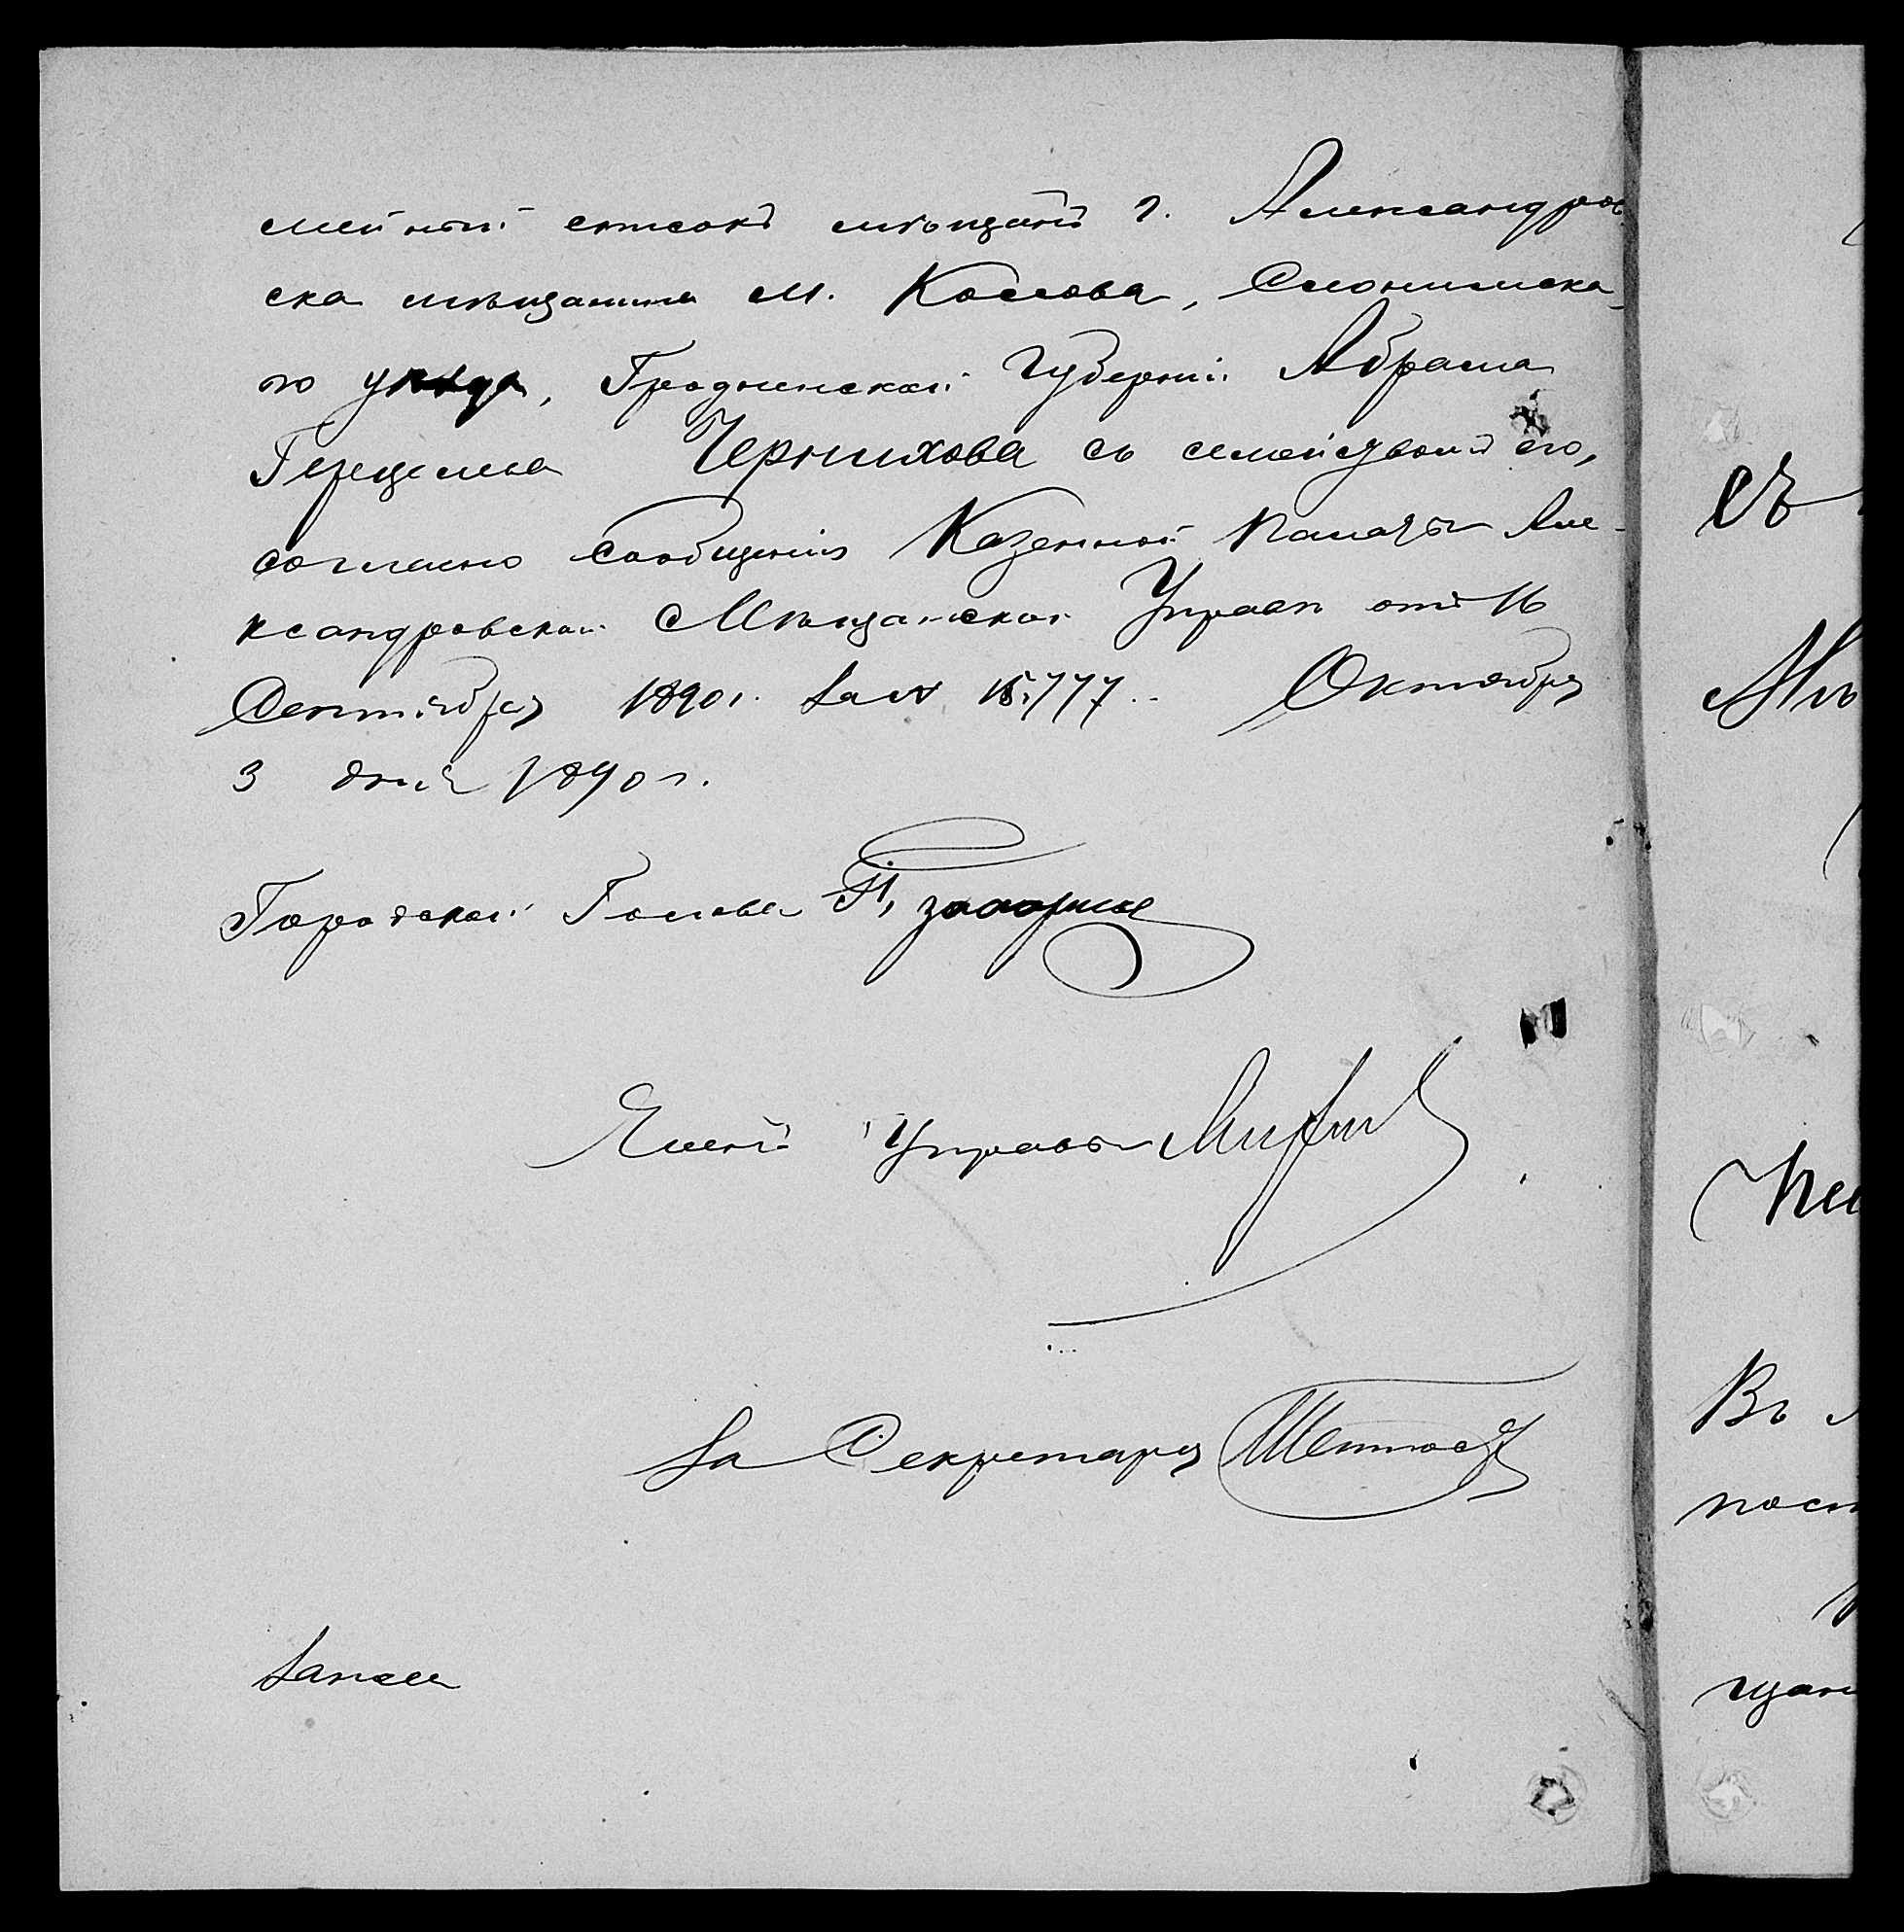 мейный списокъ мѣщанъ г. Александров
ска мѣщанина м. Коссова, Слонимска-
го уѣзда, Гродненской губерніи Абрама
Гершелева Чернихова съ семействомъ его,
согласно сообщенія Казенной Палаты Але-
ксандровской Мѣщанской Управѣ отъ 16
Сентября 1890 г. за № 15,777. Октября
3 дня 1890 г.
Городской Голова
Членъ Управы
За Секретаря
съ
Мѣ
Въ
пост
щан